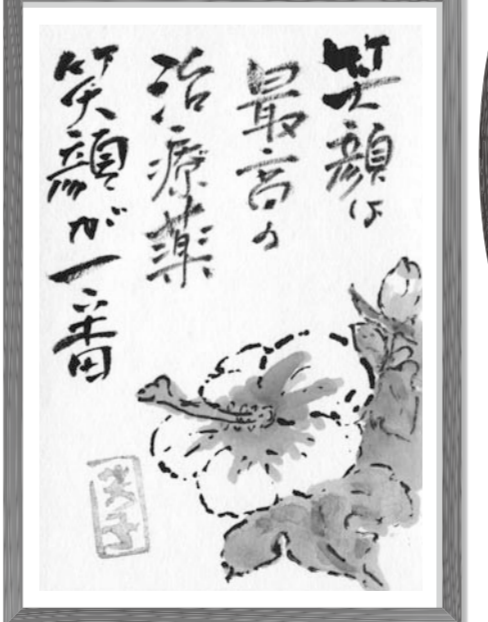 笑顔は
最高の
治療薬
笑顔が一番